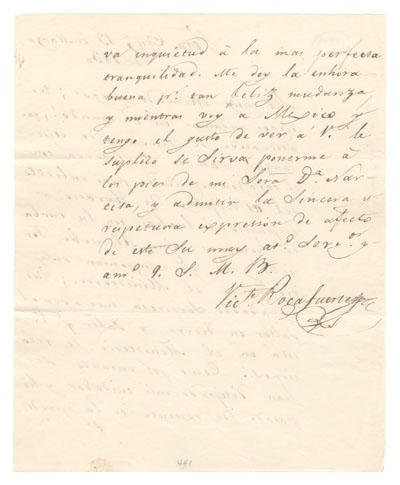 va inquietud à la mas perfecta
tranquilidad. Me doy la enhora
buena pr. tan feliz mudanza,
y mientras voy a Mexico y
tengo el gusto de ver á V. le
suplico se sirva ponerme à
los pies de mi Sra Da. Nar-
cisa, y admitir la sincera y
respetuosa expresión de afecto
de este su muy ato. servor. y
amo. Q. S. M. B.
Victe Rocafuerte
441